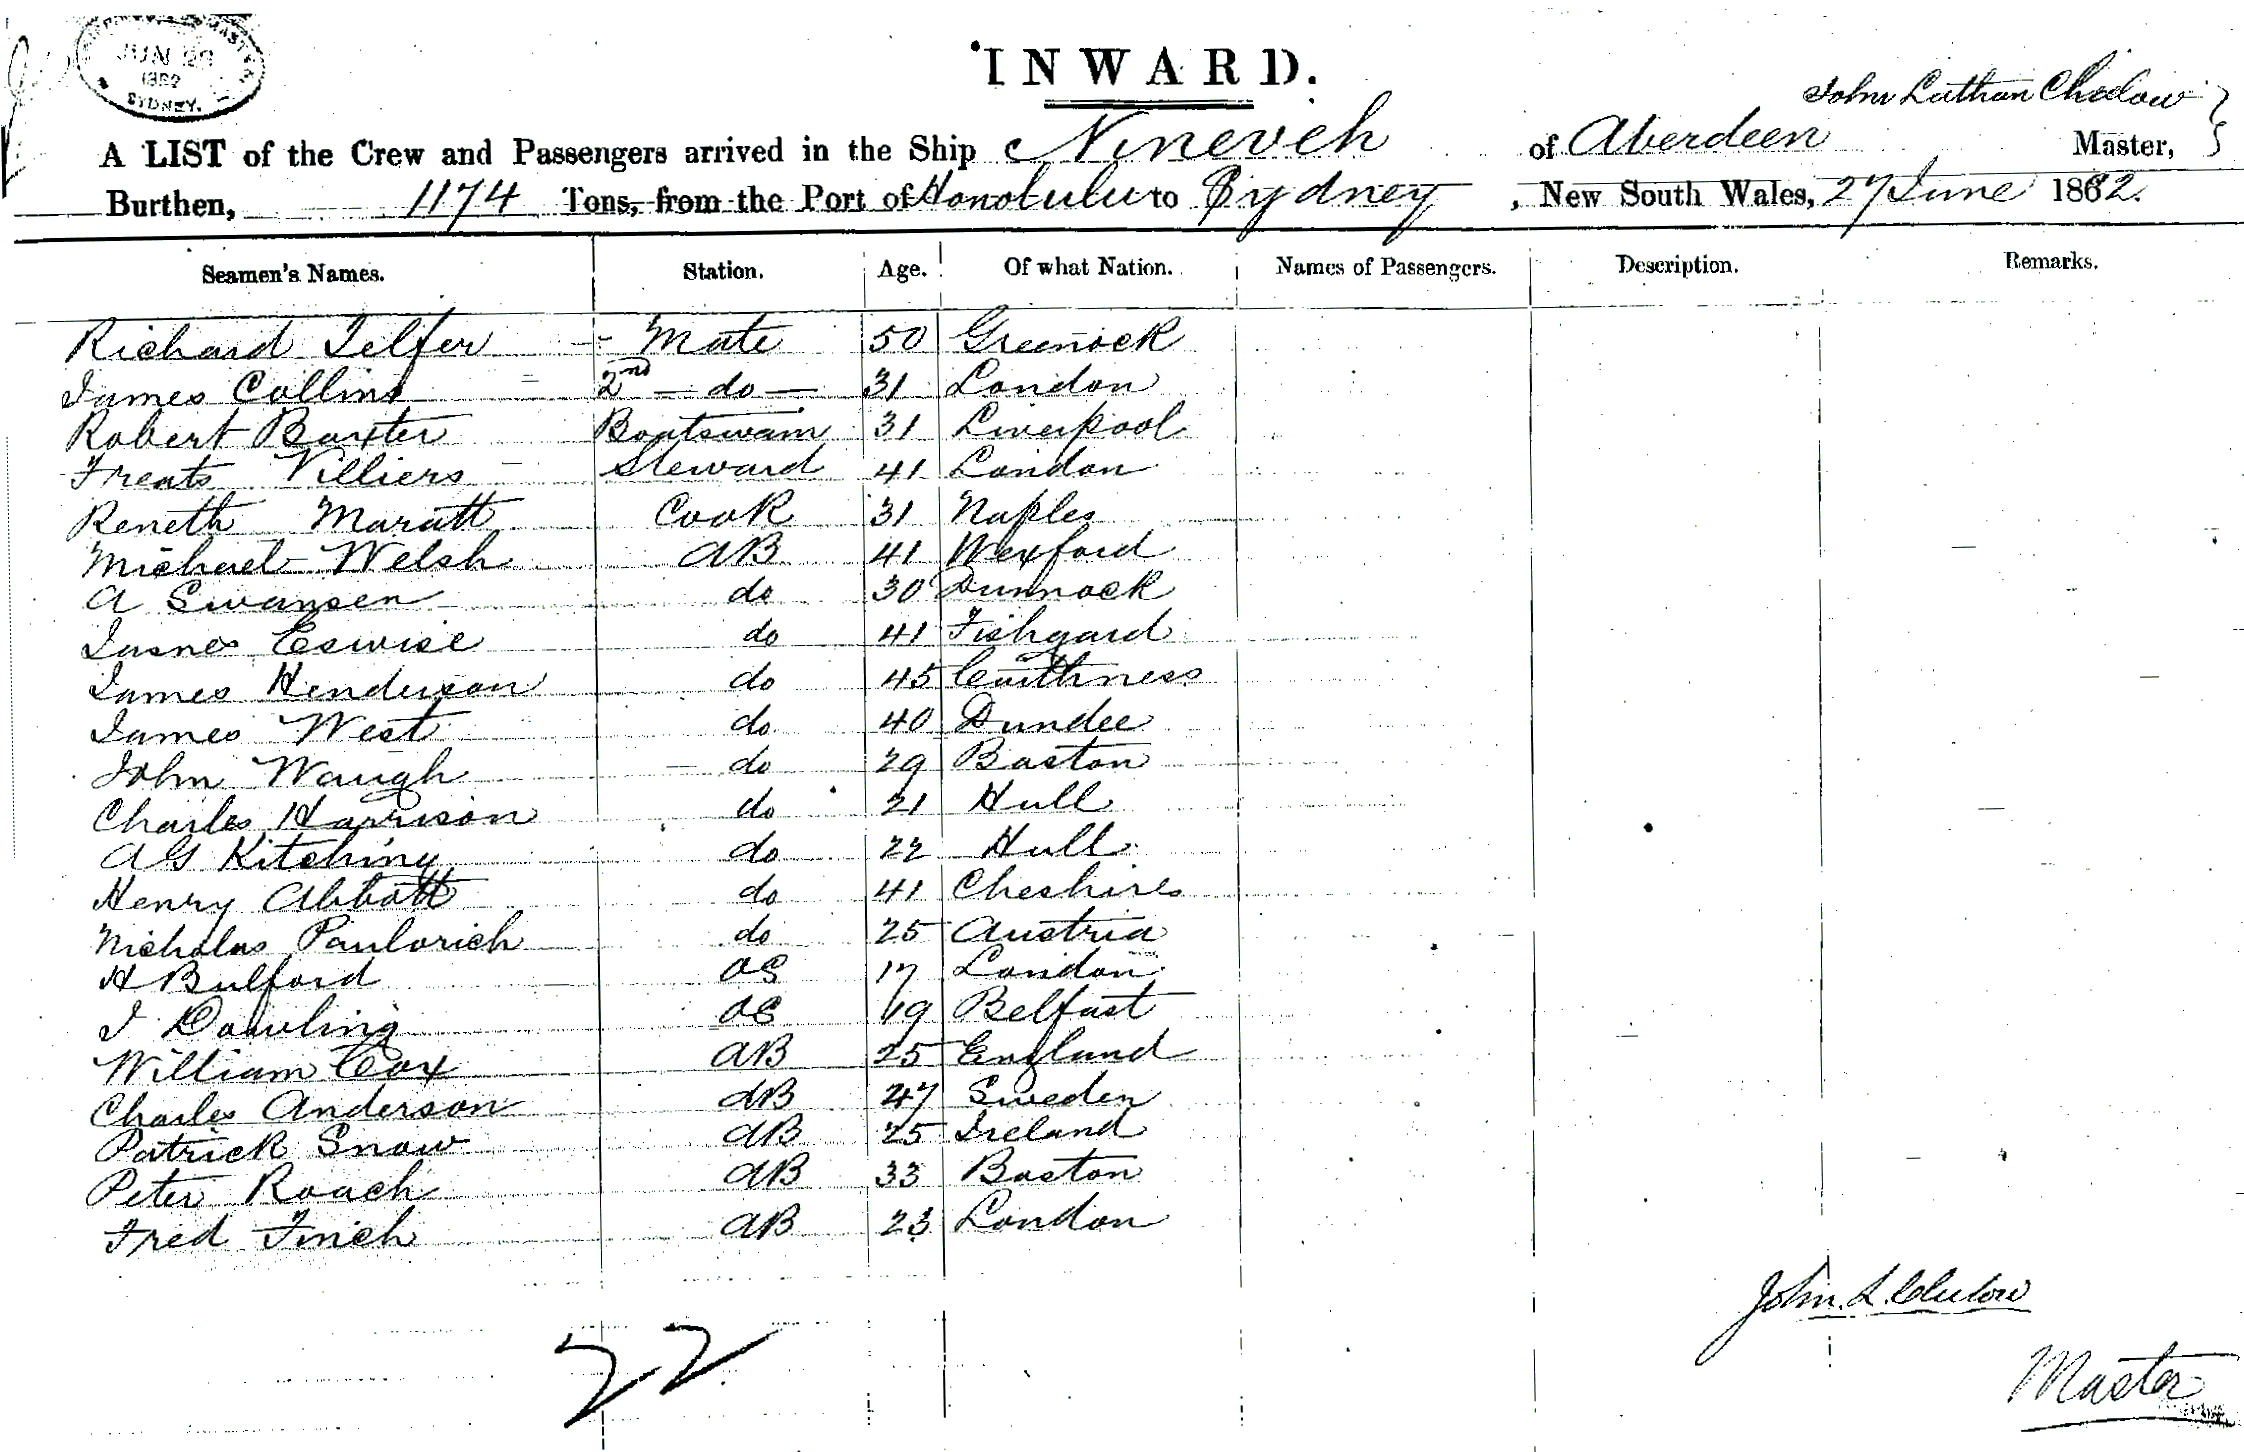 JUN 29
SYDNEY.
INWARD.
John Luthan
A LIST of the Crew and Passengers arrived in the Ship Nineveh of Aberdeen Master,
Burthen, 1174 Tons, from the Port of Honolulu to Sydney, New South Wales, 27 June 1882.
Seamen's Names. Station. Age. Of what Nation. Names of Passengers. Description. Remarks.
Richard Telfer - Mate 50 Greenock
James Collins 2nd - do - 31 London
Robert Baxter Boatswain 31 Liverpool
Villiers Steward 41 London
Reneth Maratt Cook 31 Naples
Michael Welsh AB 41 Wexford
A Swansen do 30
James do 41 Fishgard
James Henderson do 45 Caithness
James West do 40 Dundee
John Waugh do 29 Boston
Charles Harrison do 21 Hull
A G Kitching do 22 Hull
Henry Abbott do 41 Cheshire
Nicholas Paulovich do 25 Austria
H Bulford OS 17 London
J Dowling OS 19 Belfast
William Cox AB 25 England
Charles Anderson AB 47 Sweden
Patrick Snow AB 25 Ireland
Peter Roach AB 33 Boston
Fred Finch AB 23 London
John. L.
22
Master